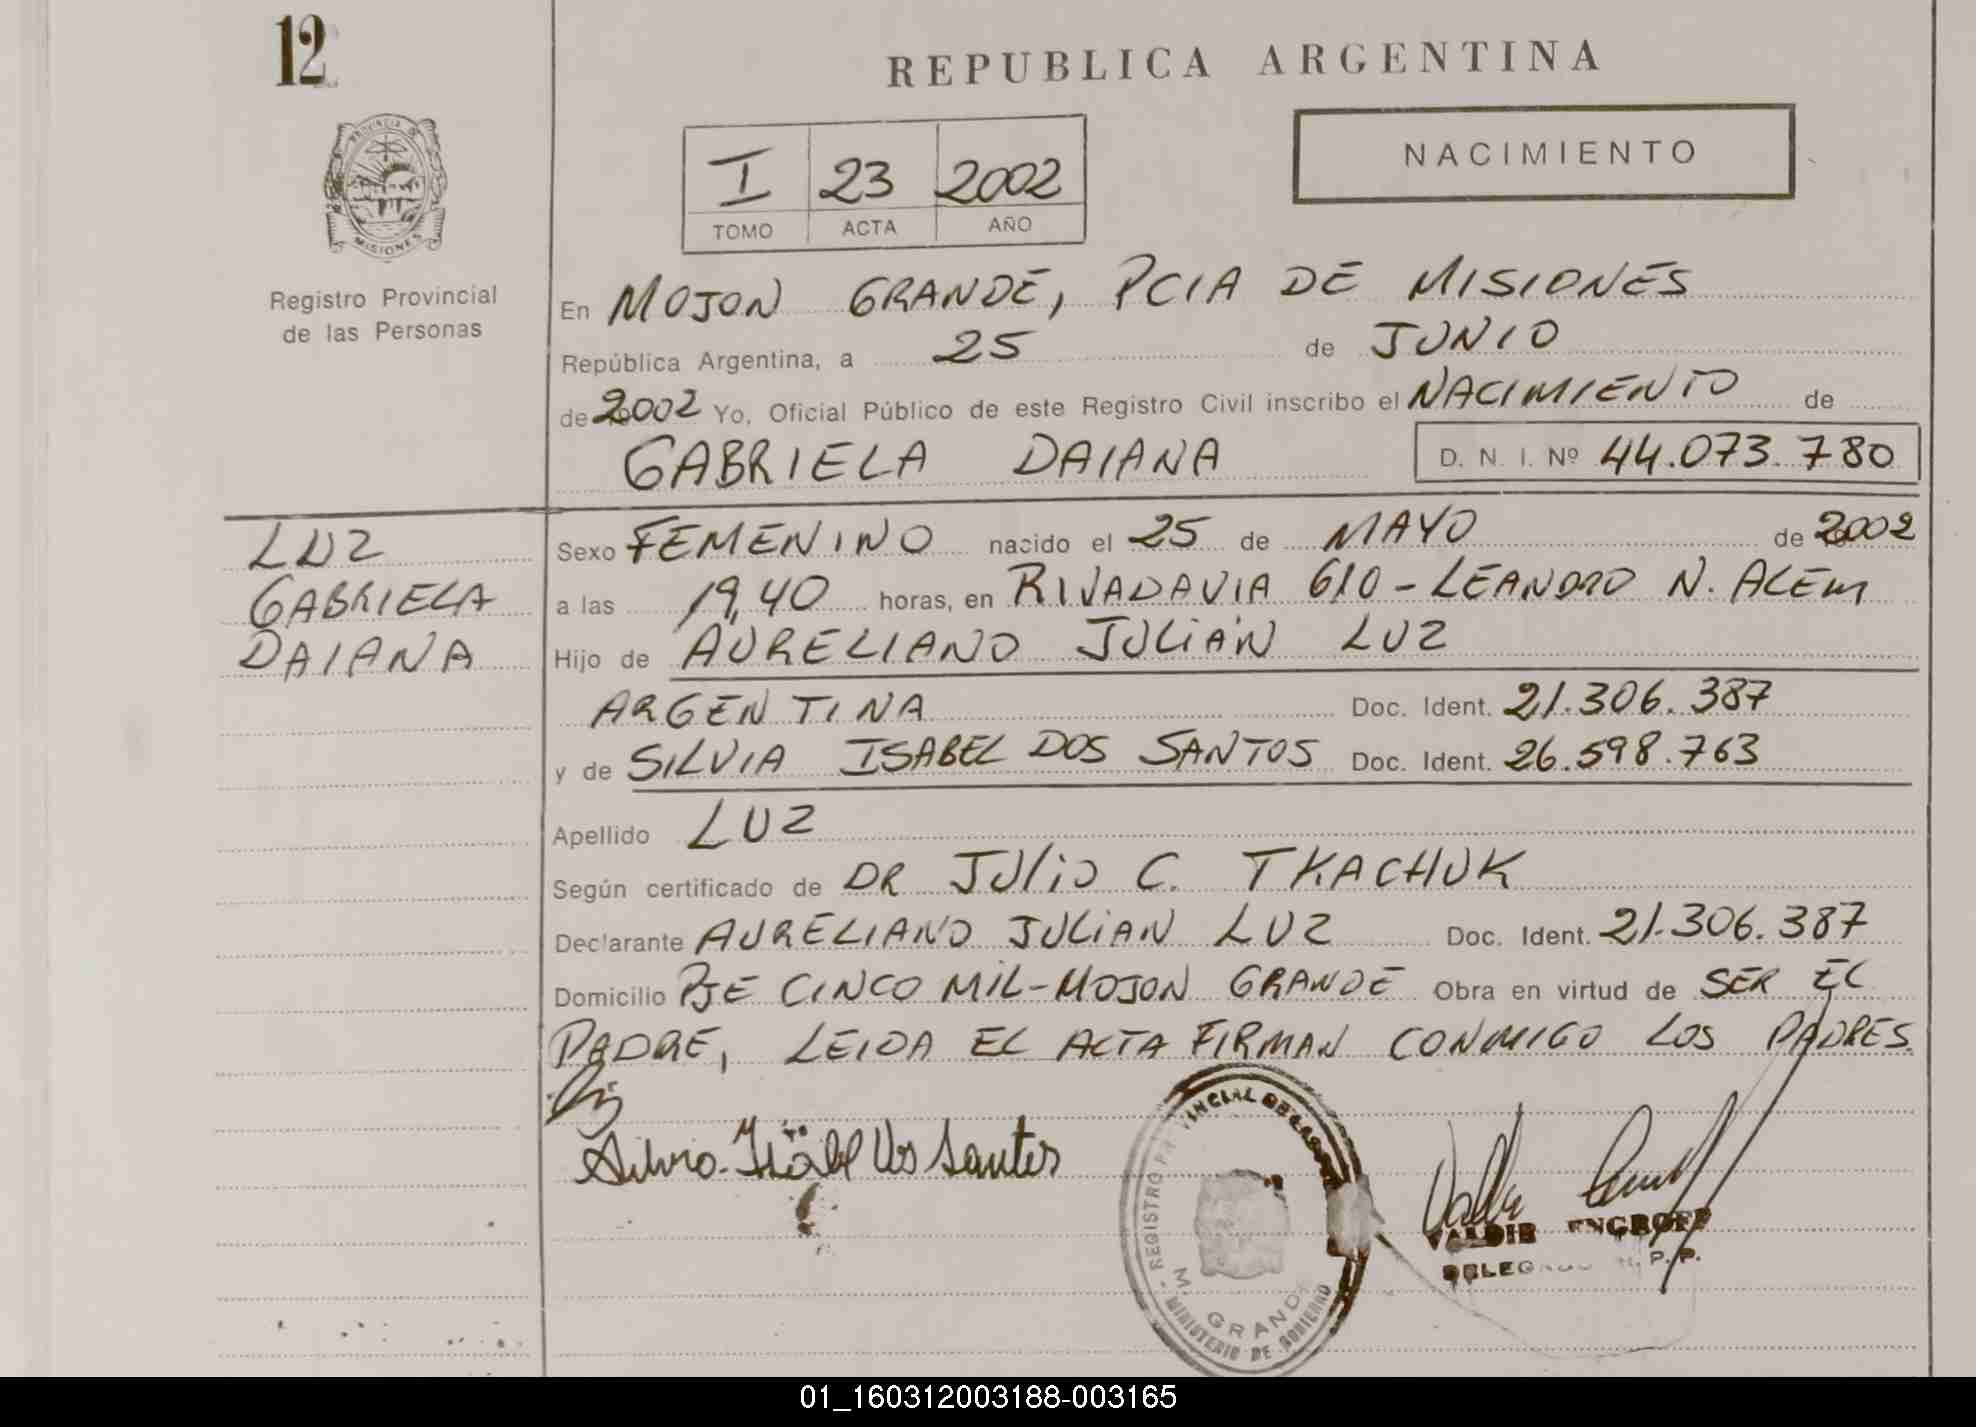 12
REPUBLICA ARGENTINA
PROVINCIA DE
MISIONES
Registro Provincial
de las Personas
I 23 2002
TOMO ACTA AÑO
NACIMIENTO
En MOJON GRANDE, PCIA DE MISIONES
República Argentina, a 25 de JUNIO
de 2002 Yo, Oficial Público de este Registro Civil inscribo el NACIMIENTO de
GABRIELA DAIANA D. N. I. Nº 44.073.780
LUZ
GABRIELA
DAIANA
Sexo FEMENINO nacido el 25 de MAYO de 2002
a las 19,40 horas, en RIVADAVIA 610 - LEANDRO N. ALEM
Hijo de AURELIANO JULIÁN LUZ
ARGENTINA Doc. Ident. 21.306.387
y de SILVIA ISABEL DOS SANTOS Doc. Ident. 26.598.763
Apellido LUZ
Según certificado de DR JULIO C. TKACHUK
Declarante AURELIANO JULIAN LUZ Doc. Ident. 21.306.387
Domicilio PJE CINCO MIL - MOJON GRANDE Obra en virtud de SER EL
PADRE, LEIDA EL ACTA FIRMAN CONMIGO LOS PADRES.
Silvia Isabel Dos Santos
REGISTRO PROVINCIAL DE LAS
M. GRANDE
MINISTERIO DE GOBIERNO
VALDIR ENGROFF
01_160312003188-003165